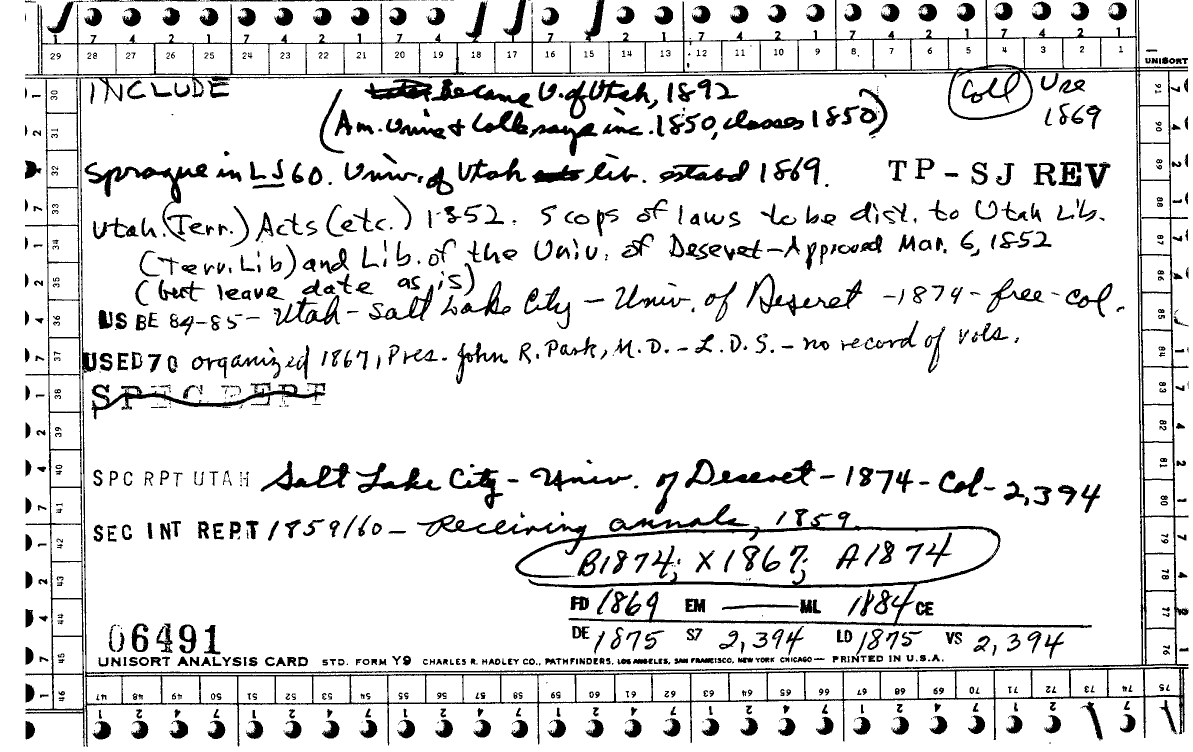 7 4 2 1 7 4 2 1 7 4 2 1 7 4 2 1 7 4 2 1 7 4 2 1
29 28 27 26 25 24 23 22 21 20 19 18 17 16 15 14 13 12 11 10 9 8 7 6 5 4 3 2 1
UNISORT
INCLUDE became U. of Utah, 1892 Coll Use
(Am. Univs + Colls says inc. 1850, classes 1850) 1869
Sprague in LJ 60. Univ. of Utah lib. estabd 1869. TP-SJ REV
Utah. (Terr.) Acts (etc.) 1852. 5 cops of laws to be dist. to Utah Lib.
(Terr. Lib) and Lib. of the Univ. of Deseret - Approved Mar. 6, 1852
(but leave date as is)
US BE 84-85 - Utah - Salt Lake City - Univ. of Deseret - 1874 - free - col.
USED 70 organized 1867, Pres. John R. Park, M.D. - L.D.S. - no record of vols.
SPEC DEPT
SPC RPT UTAH Salt Lake City - Univ. of Deseret - 1874 - Col - 2,394
SEC INT REPT 1859/60 - Receiving annals, 1859
B1874; X1867; A1874
FD 1869 EM ——— ML 1884 CE
DE 1875 S7 2,394 LD 1875 VS 2,394
06491
UNISORT ANALYSIS CARD STD. FORM Y9 CHARLES R. HADLEY CO., PATHFINDERS, LOS ANGELES, SAN FRANCISCO, NEW YORK CHICAGO — PRINTED IN U.S.A.
30 31 32 33 34 35 36 37 38 39 40 41 42 43 44 45 46
91 90 89 88 87 86 85 84 83 82 81 80 79 78 77 76
47 48 49 50 51 52 53 54 55 56 57 58 59 60 61 62 63 64 65 66 67 68 69 70 71 72 73 74 75